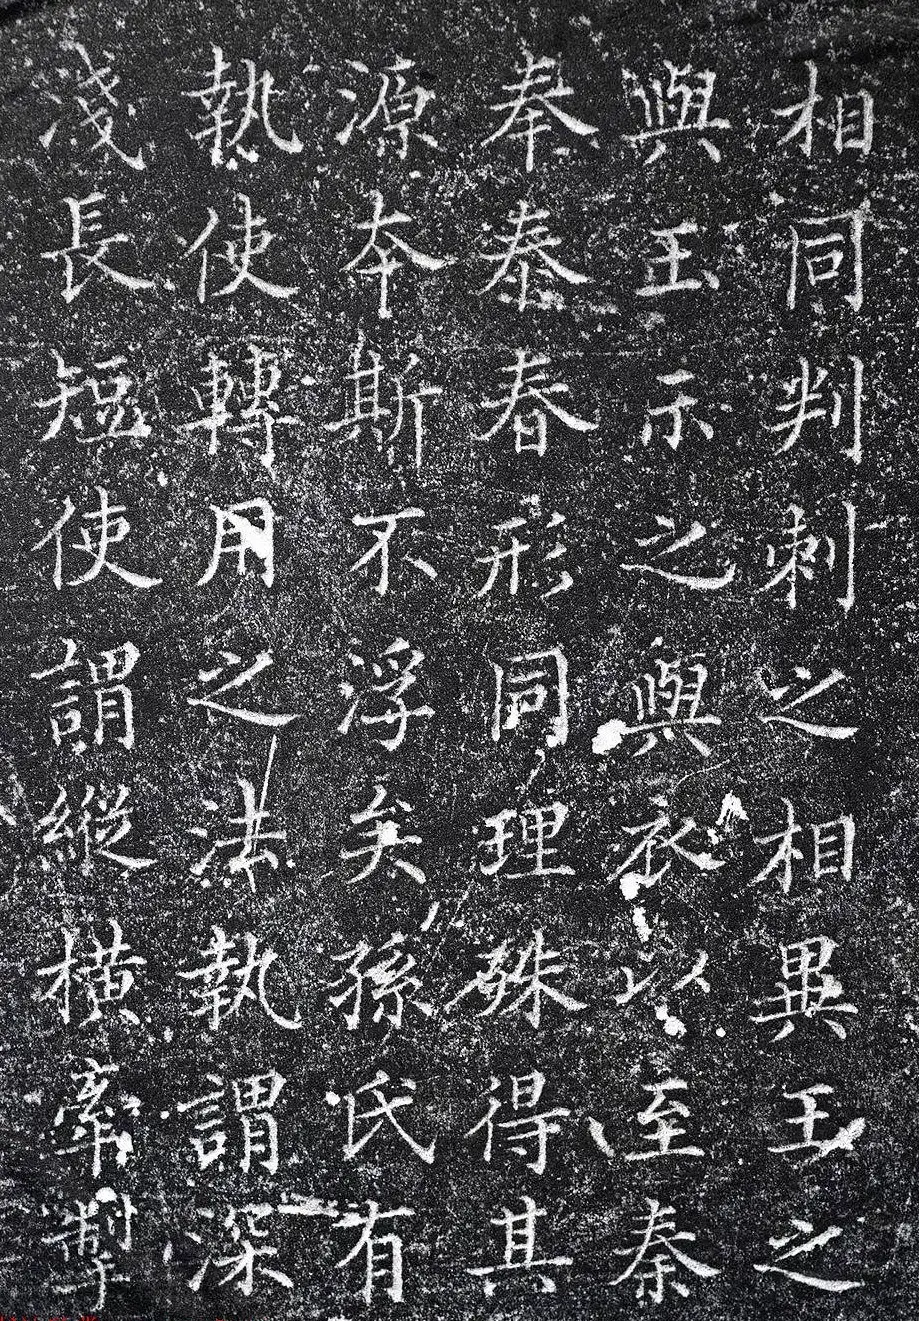 相同判刺之相異王之
與玉示之與衣以至秦
奉泰春形同理殊得其
源本斯不浮矣孫氏有
執使轉用之法執謂深
淺長短使謂縱橫牽掣